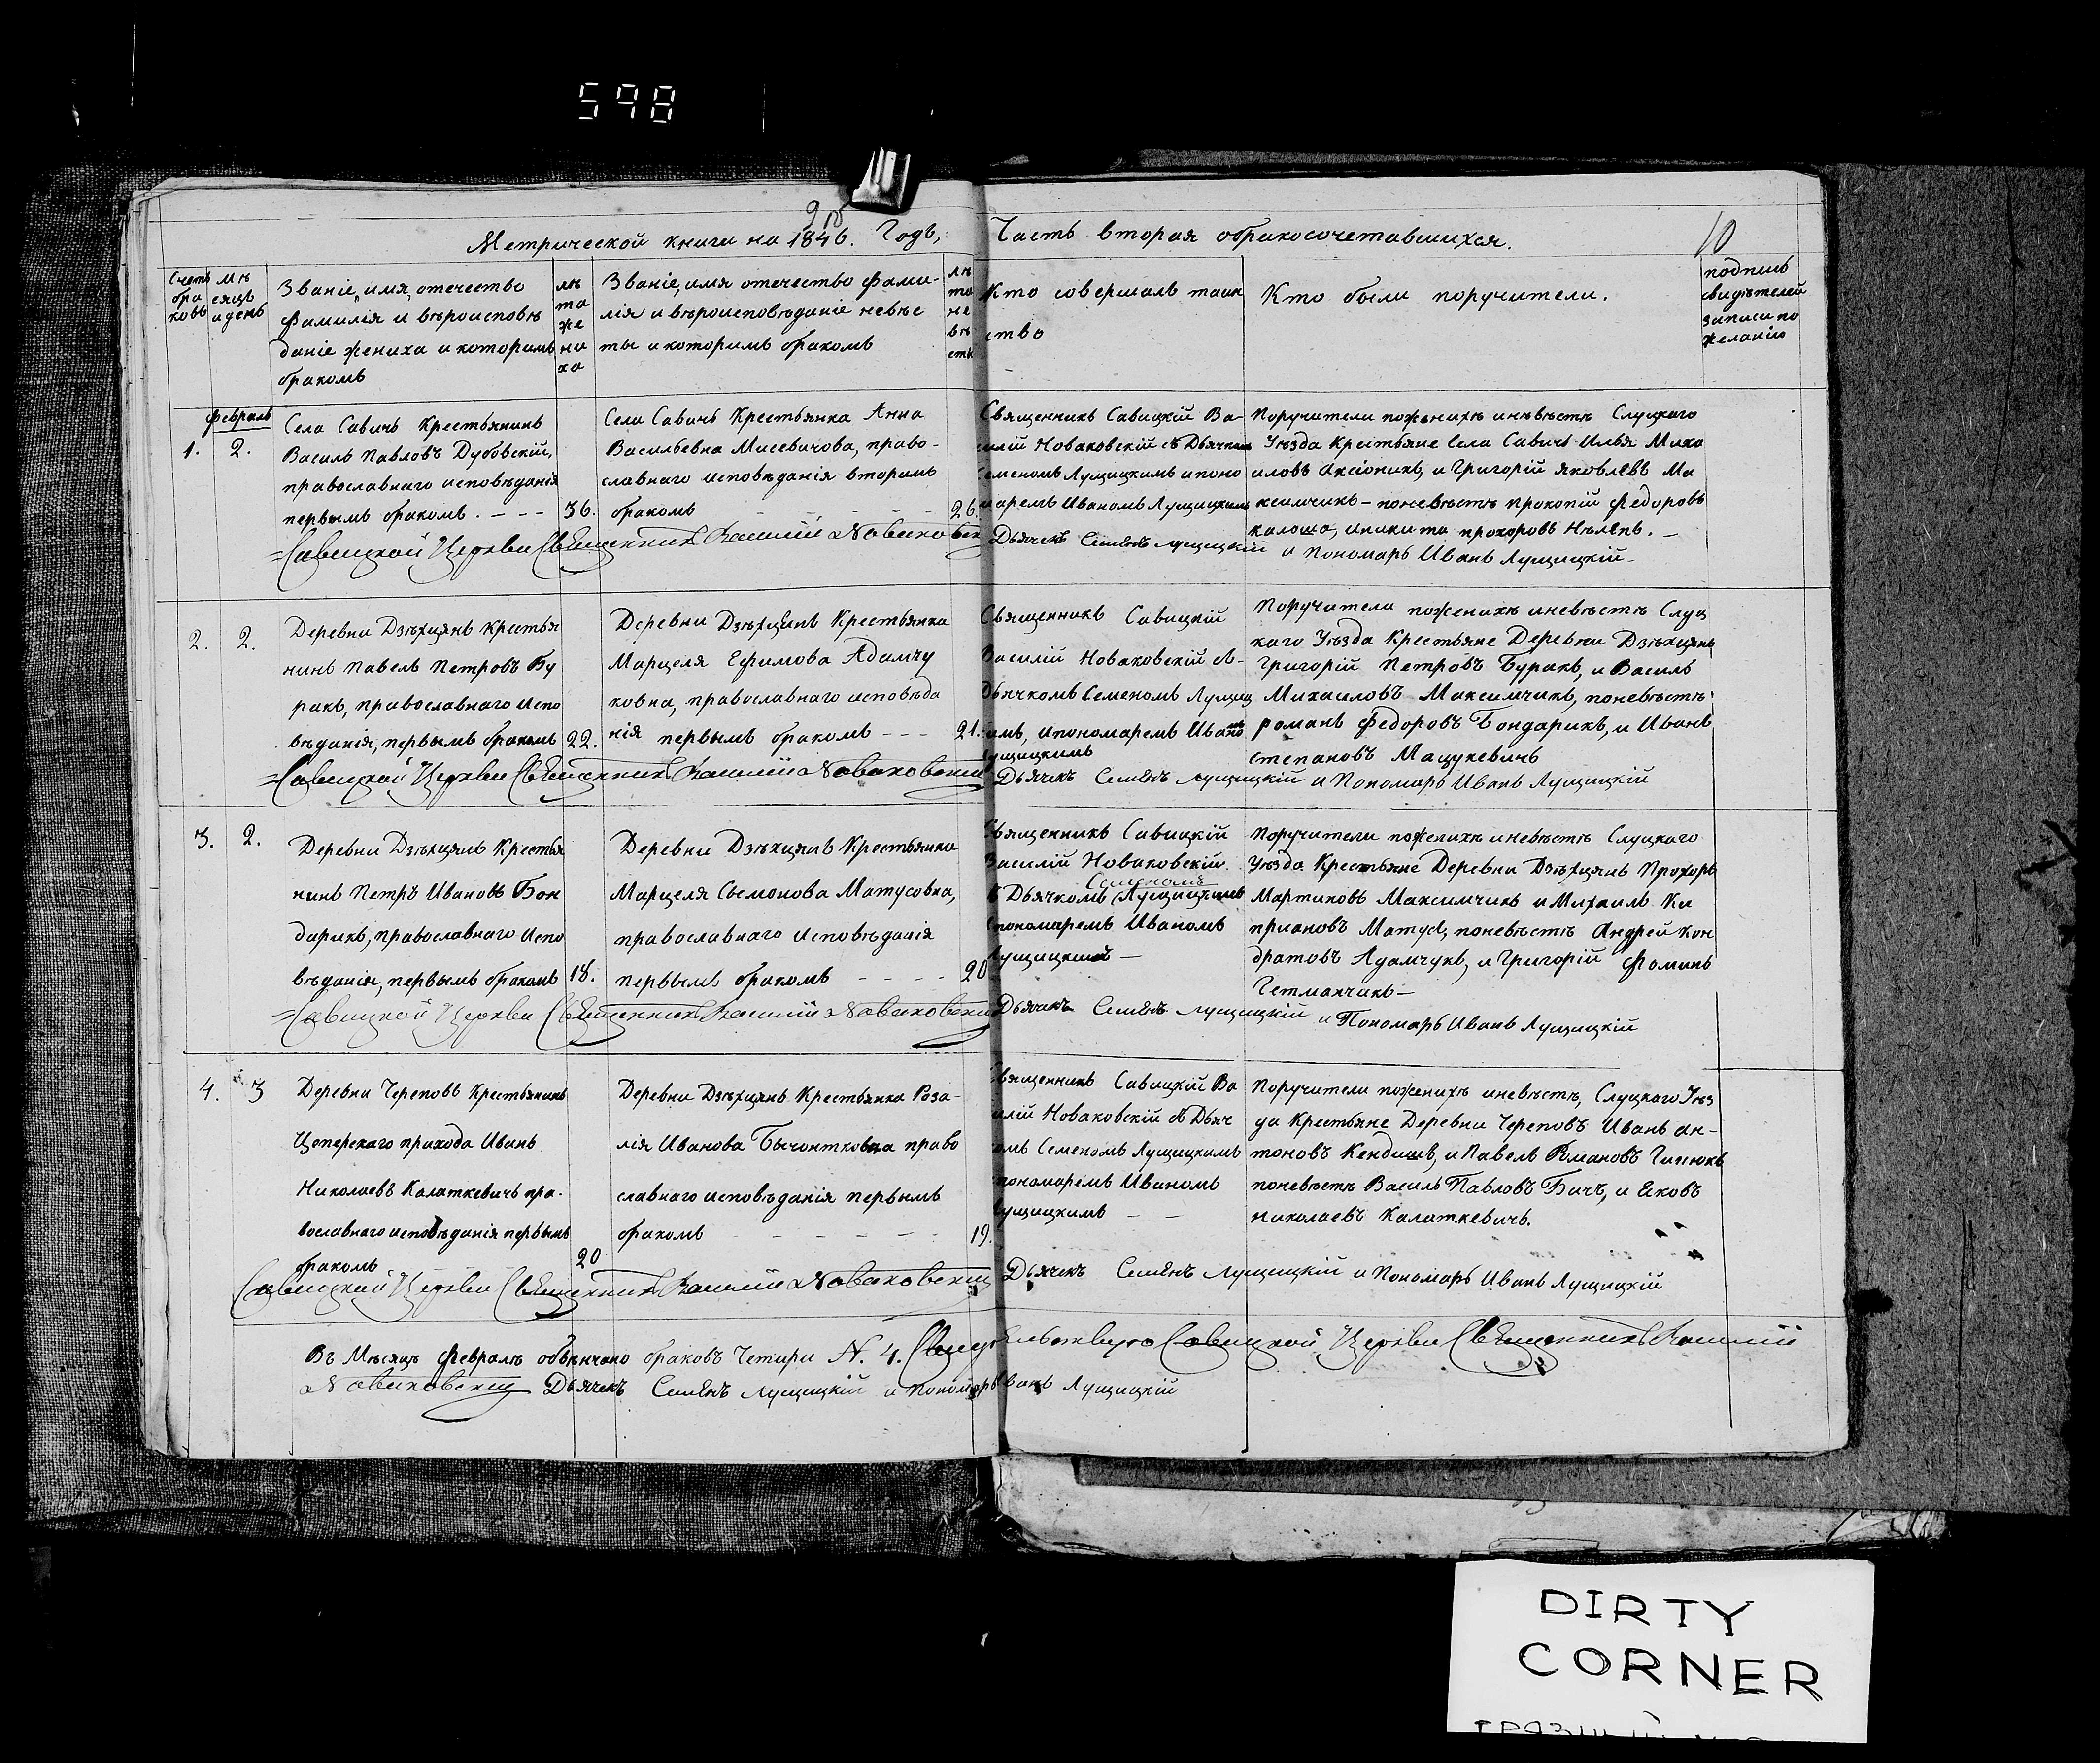 598
9 10
Метрической книги на 1846. Годъ, Часть вторая обракосочетавшихся.
10
Счетъ браковъ
Мѣсяцъ и день
Званіе, имя, отечество
фамилія и вѣроисповѣ
даніе жениха и которимъ
бракомъ
лѣ
та
же
ни
ха
Званіе, имя отечество фами-
лія и вѣроисповѣданіе невѣс
ты и которимъ бракомъ
лѣ
та
не
вѣ
сты
Кто совершалъ таин
ство
Кто были поручители.
подпись
свидѣтелей
записи по
желанію
февраль
1. 2.
Села Савичъ Крестьянинъ
Василь Павловъ Дубовскій,
православнаго исповѣданія
первымъ бракомъ. - - - 36.
Села Савичъ Крестьянка Анна
Васильевна Мисевичова, право-
славнаго исповѣданія вторымъ
бракомъ - - - - - 26.
Священникъ Савицкій Ва-
силій Новаковскій съ Дьячкомъ
Семеномъ Лущицкимъ и поно
маремъ Иваномъ Лущицкимъ
Поручители по женихѣ и невѣстѣ Слуцкаго
Уѣзда Крестьяне Села Савичъ Илья Миха
иловъ Аксіоникъ, и Григорій Яковлевъ Ма
ксимчикъ - по невѣстѣ Прокопій Федоровъ
калоша, и никита прохоровъ Нѣлепъ. -
=Савицкой Церкви Священникъ Василій Новаковскій Дьячекъ Семенъ Лущицкій и Пономарь Иванъ Лущицкій -
2. 2.
Деревни Дзѣхцянъ Крестья
нинъ Павелъ Петровъ Бу
ракъ, православнаго испо
вѣданія, первымъ бракомъ 22.
Деревни Дзѣхцянъ Крестьянка
Марцеля Ефимова Адамчу
ковна, православнаго исповѣда
нія первымъ бракомъ - - - 21.
Священникъ Савицкій
Василій Новаковскій съ-
Дьячкомъ Семеномъ Лущиц
кимъ, и пономаремъ Иваномъ
Лущицкимъ
Поручители по женихѣ и невѣстѣ Слуц
каго Уѣзда Крестьяне Деревни Дзѣхцянъ
Григорій Петровъ Буракъ, и Василь
Михаиловъ Максимчикъ, по невѣстѣ
романъ Федоровъ Бондарикъ, и Иванъ
степановъ Мацукевичъ
=Савицкой Церкви Священникъ Василій Новаковскій Дьячекъ Семенъ Лущицкій и Пономарь Иванъ Лущицкій
3. 2.
Деревни Дзѣхцянъ Крестья
нинъ Петръ Ивановъ Бон
дарикъ, православнаго испо
вѣданія, первымъ бракомъ 18.
Деревни Дзѣхцянъ Крестьянка
Марцеля Сымонова Матусовна,
православнаго исповѣданія
первымъ бракомъ - - - - 20
Священникъ Савицкій
Василій Новаковскій.
съ Дьячкомъ Семеномъ Лущицкимъ
и пономаремъ Иваномъ
Лущицкимъ -
Поручители по женихѣ и невѣстѣ Слуцкаго
Уѣзда Крестьяне Деревни Дзѣхцянъ Прохоръ
Мартиновъ Максимчикъ и Михаилъ Ки
приановъ Матус, по невѣстѣ Андрей Кон
дратовъ Адамчукъ, и Григорій Фоминъ
Гетманчикъ -
=Савицкой Церкви Священникъ Василій Новаковскій Дьячекъ Семенъ Лущицкій и Пономарь Иванъ Лущицкій
4. 3
Деревни Череповъ Крестьянинъ
Цеперскаго прихода Иванъ
Николаевъ Калаткевичъ пра-
вославнаго исповѣданія первымъ
бракомъ 20
Деревни Дзѣхцянъ Крестьянка Роза-
лія Иванова Бычонтковна право
славнаго исповѣданія первымъ
бракомъ - - - - - - 19.
Священникъ Савицкій Ва
силій Новаковскій съ Дьяч
комъ Семеномъ Лущицкимъ
и пономаремъ Иваномъ
Лущицкимъ - -
Поручители по женихѣ и невѣстѣ, Слуцкаго Уѣз
да Крестьяне Деревни Череповъ Иванъ ан-
тоновъ Кендишъ, и Павелъ Романовъ Гинюкъ
по невѣстѣ Василь Павловъ Бичъ, и Яковъ
николаевъ Калаткевичъ.
Савицкой Церкви Священникъ Василій Новаковскій Дьячекъ Семенъ Лущицкій и Пономарь Иванъ Лущицкій
Въ Мѣсяцѣ февралѣ обвѣнчано браковъ Четири N. 4. Свидѣтельствую Савицкой Церкви Священникъ Василій
Новаковскій Дьячекъ Семенъ Лущицкій и Пономарь Иванъ Лущицкій
DIRTY
CORNER